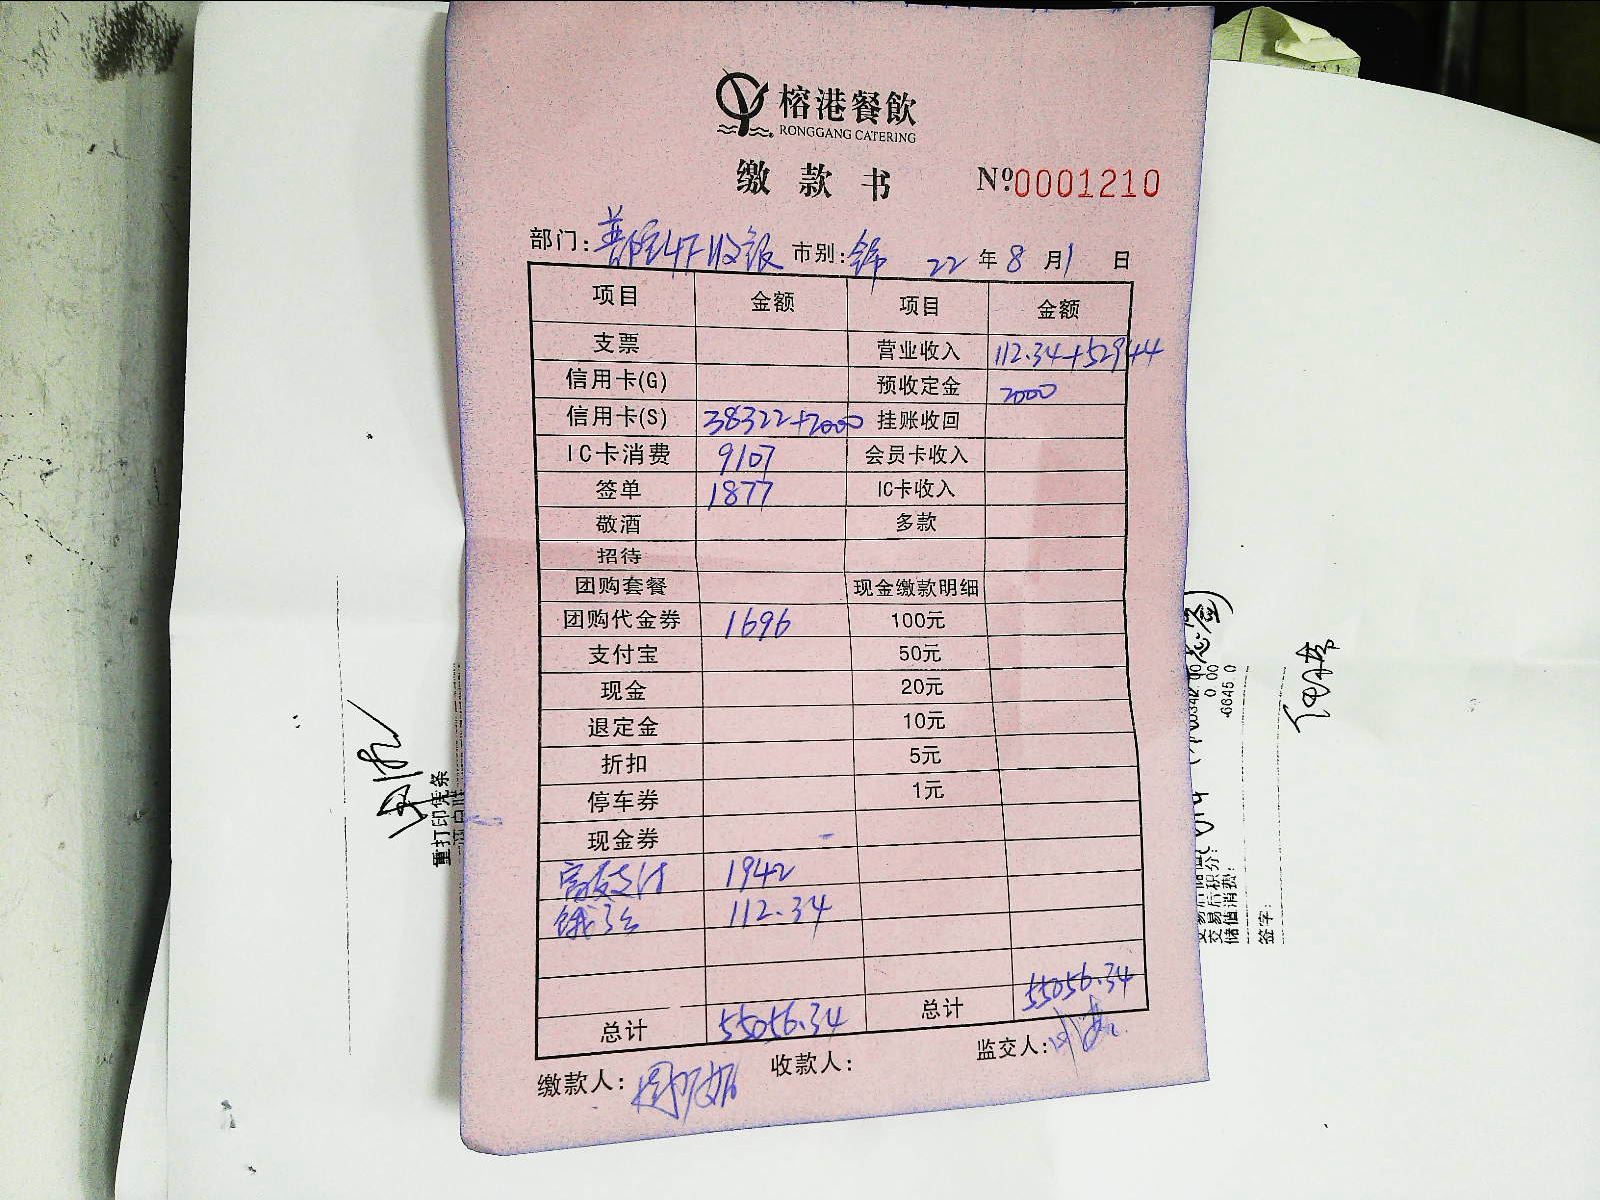 榕港餐飲
RONGGANG CATERING
缴款书 №0001210
部门: 4F收银 市别: 22年8月1日
项目 金额 项目 金额
支票 营业收入 112.34+52944
信用卡(G) 预收定金 2000
信用卡(S) 38322+2000 挂账收回
IC卡消费 9107 会员卡收入
签单 1877 IC卡收入
敬酒 多款
招待
团购套餐 现金缴款明细
团购代金券 1696 100元
支付宝 50元
现金 20元
退定金 10元
折扣 5元
停车券 1元
现金券
支付 1942
饿了么 112.34
总计 55056.34 总计 55056.34
缴款人: 收款人: 监交人:
重打印凭条
0.00
6645.0
交易后积分:
储值消费:
签字: